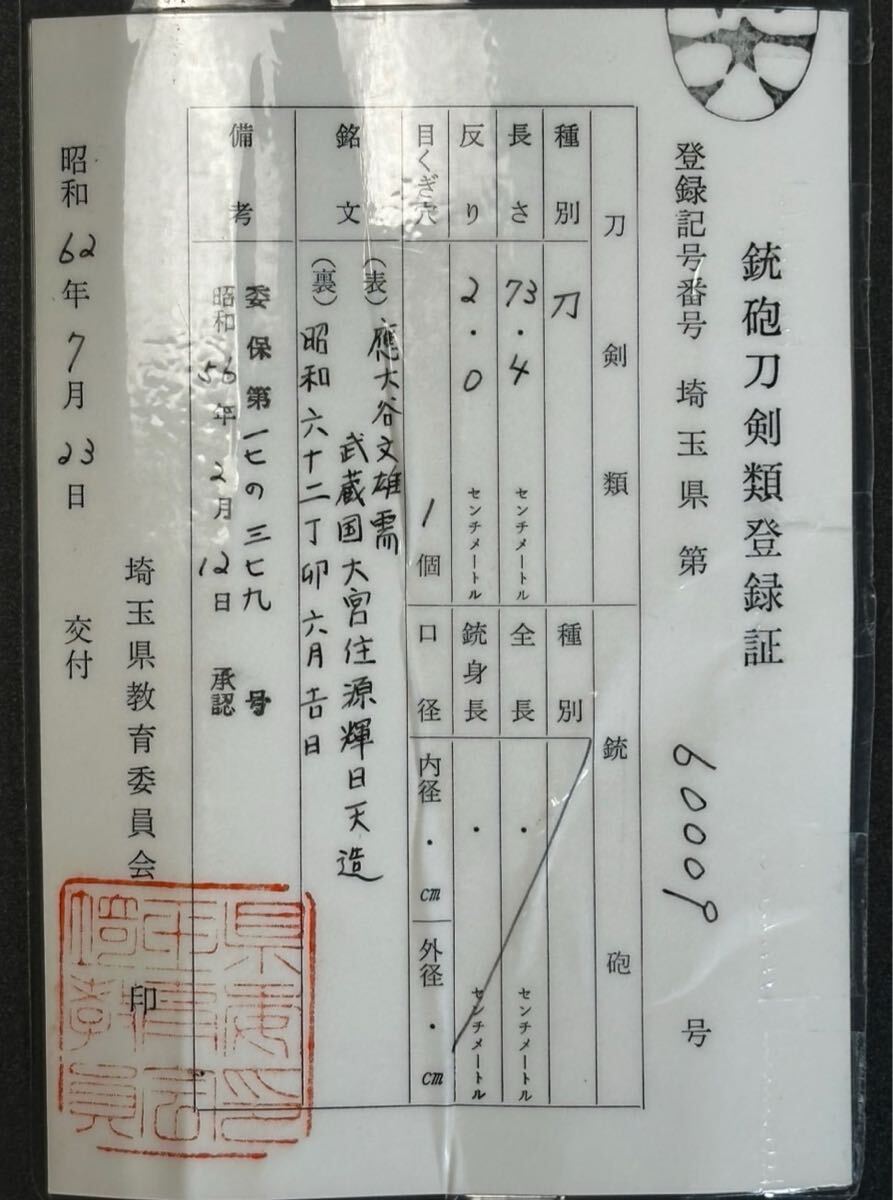 銃砲刀剣類登録証
登録記号番号 埼玉県 第 60009 号
刀剣類
種別 刀
長さ 73.4 センチメートル
反り 2.0 センチメートル
目くぎ穴 1個
銃砲
種別
全長 ・ センチメートル
銃身長 ・ センチメートル
口径 内径 ・ cm 外径 ・ cm
銘文
(表) 應大谷文雄需
武蔵国大宮住源輝日天造
(裏) 昭和六十二丁卯六月吉日
備考
委保第一七の三七九号
昭和56年2月12日 承認
埼玉県教育委員会 印
昭和62年7月23日 交付